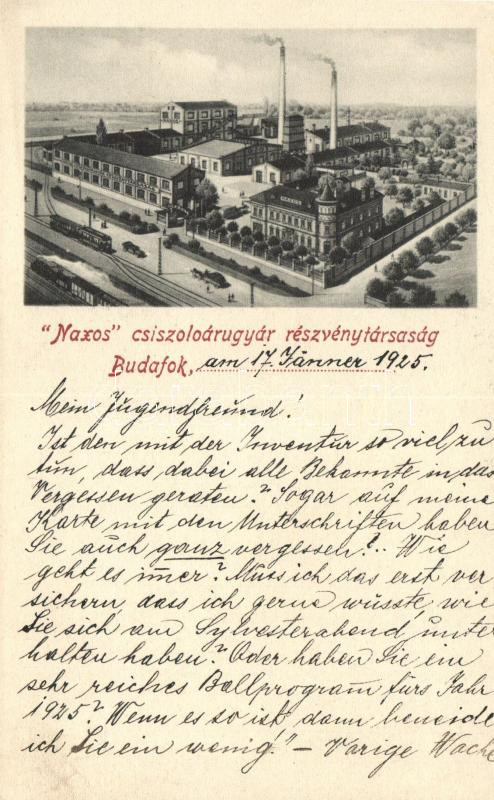 "Naxos" csiszoloárugyár részvénytársaság
Budafok, am 17. Jänner 1925.
Mein Jugendfreund!
Ist den mit der Inventur so viel zu
tun, dass dabei alle Bekannte in das
Vergessen geraten? Sogar auf meine
Karte mit den Unterschriften haben
Sie auch ganz vergessen?.. Wie
geht es imer? Muss ich das erst ver
sichern, dass ich gerne wüsste, wie
Sie sich am Sylvesterabend unter
halten haben? Oder haben Sie ein
sehr reiches Ballprogram fürs Jahr
1925? Wenn es so ist, dann beneide
ich Sie ein wenig!" – Vorige Woche